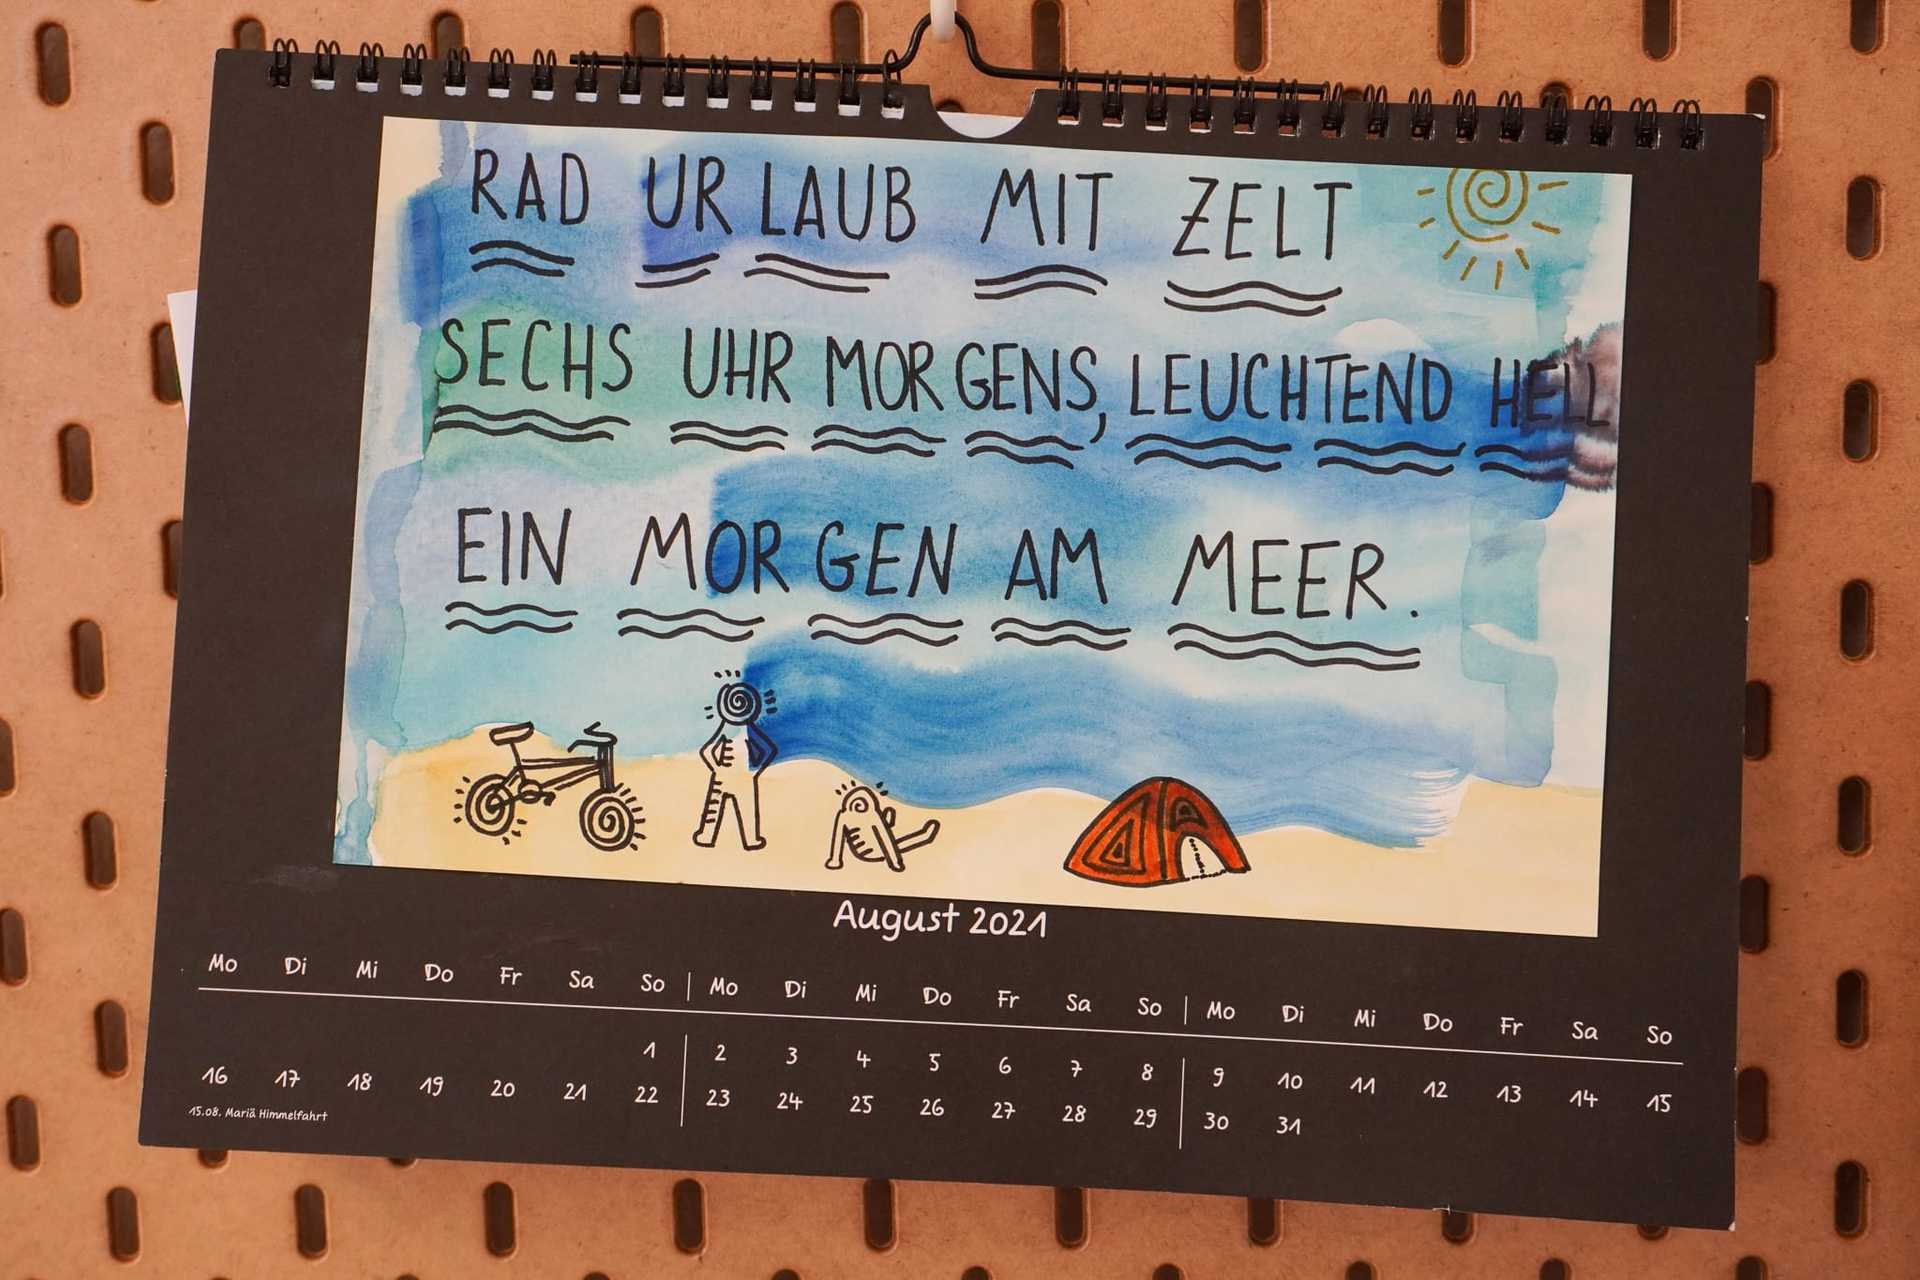 RAD URLAUB MIT ZELT
SECHS UHR MORGENS, LEUCHTEND HELL
EIN MORGEN AM MEER.
August 2021
Mo Di Mi Do Fr Sa So | Mo Di Mi Do Fr Sa So | Mo Di Mi Do Fr Sa So
1 2 3 4 5 6 7 8 9 10 11 12 13 14 15
16 17 18 19 20 21 22 23 24 25 26 27 28 29 30 31
15.08. Mariä Himmelfahrt